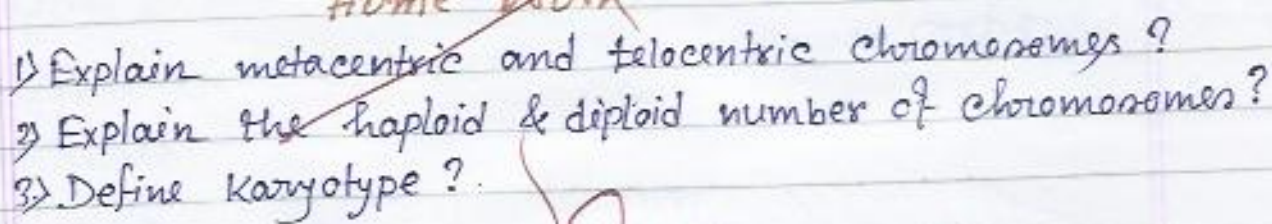 Home Work
1) Explain metacentric and telocentric chromosomes ?
2) Explain the haploid & diploid number of chromosomes ?
3) Define karyotype ?